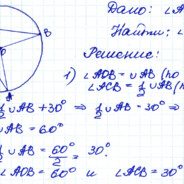 B
A
Дано: ∠A
Найти: ∠
Решение:
1) ∠AOB = ∪AB (по
∠ACB = ½ ∪AB (
½ ∪AB + 30° ⇒ ½ ∪AB = 30° ⇒
∪AB = 60°
½ ∪AB = 60°/2 = 30°.
∠AOB = 60° и ∠ACB = 30°